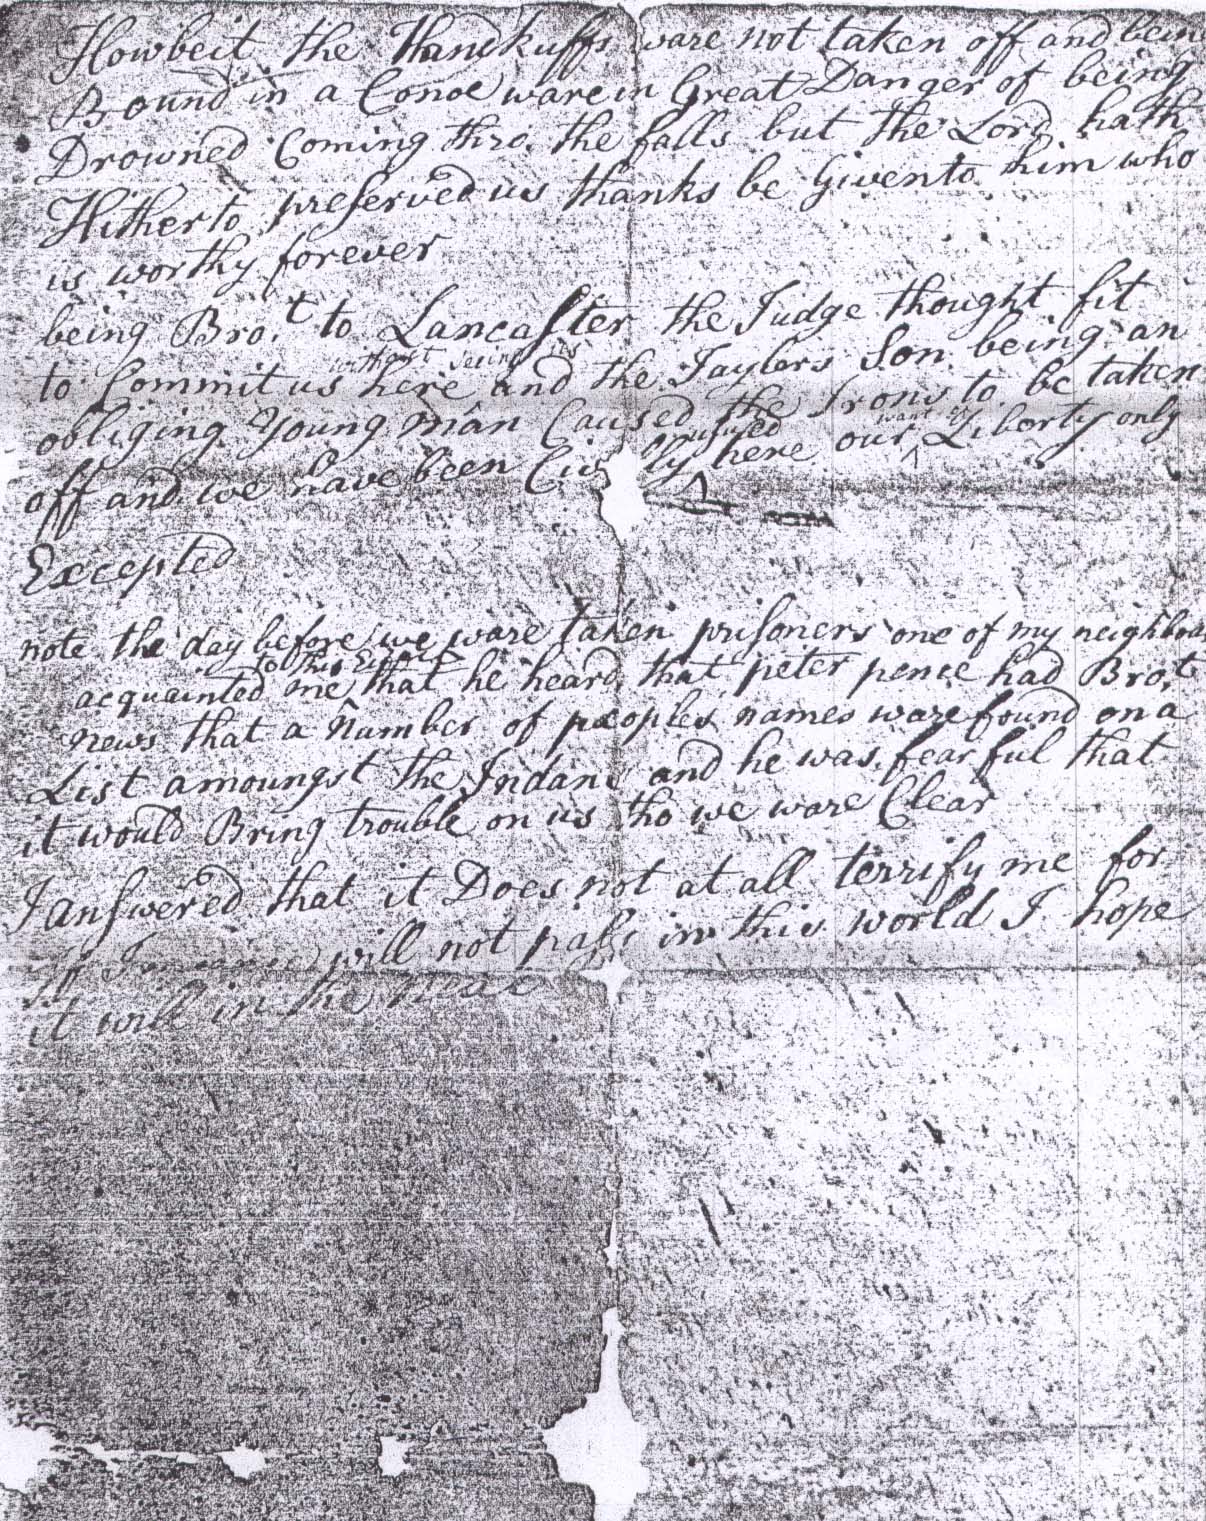 Howbeit the Handkuffs ware not taken off and being
Bound in a Conoe ware in Great Danger of being
Drowned Coming thro. the falls but the Lord hath
Hitherto preserved us thanks be Given to him who
is worthy forever
being Bro.t to Lancaster the Judge thought fit
without seeing us
to Commit us here and the Jaylers Son being an
obliging Young man Caused the Irons to be taken
off and we have been Civ ly used here our want of Liberty only
Excepted
note the day before we ware taken prisoners one of my neighbour
to this Effect
acquainted me that he heard that peter pence had Bro.t
news that a Number of peoples names ware found on a
List amoungst the Indans and he was fearful that
it would Bring trouble on us tho we ware Clear
I answered that it Does not at all terrify me for
will not pass in this world I hope
it will in the next